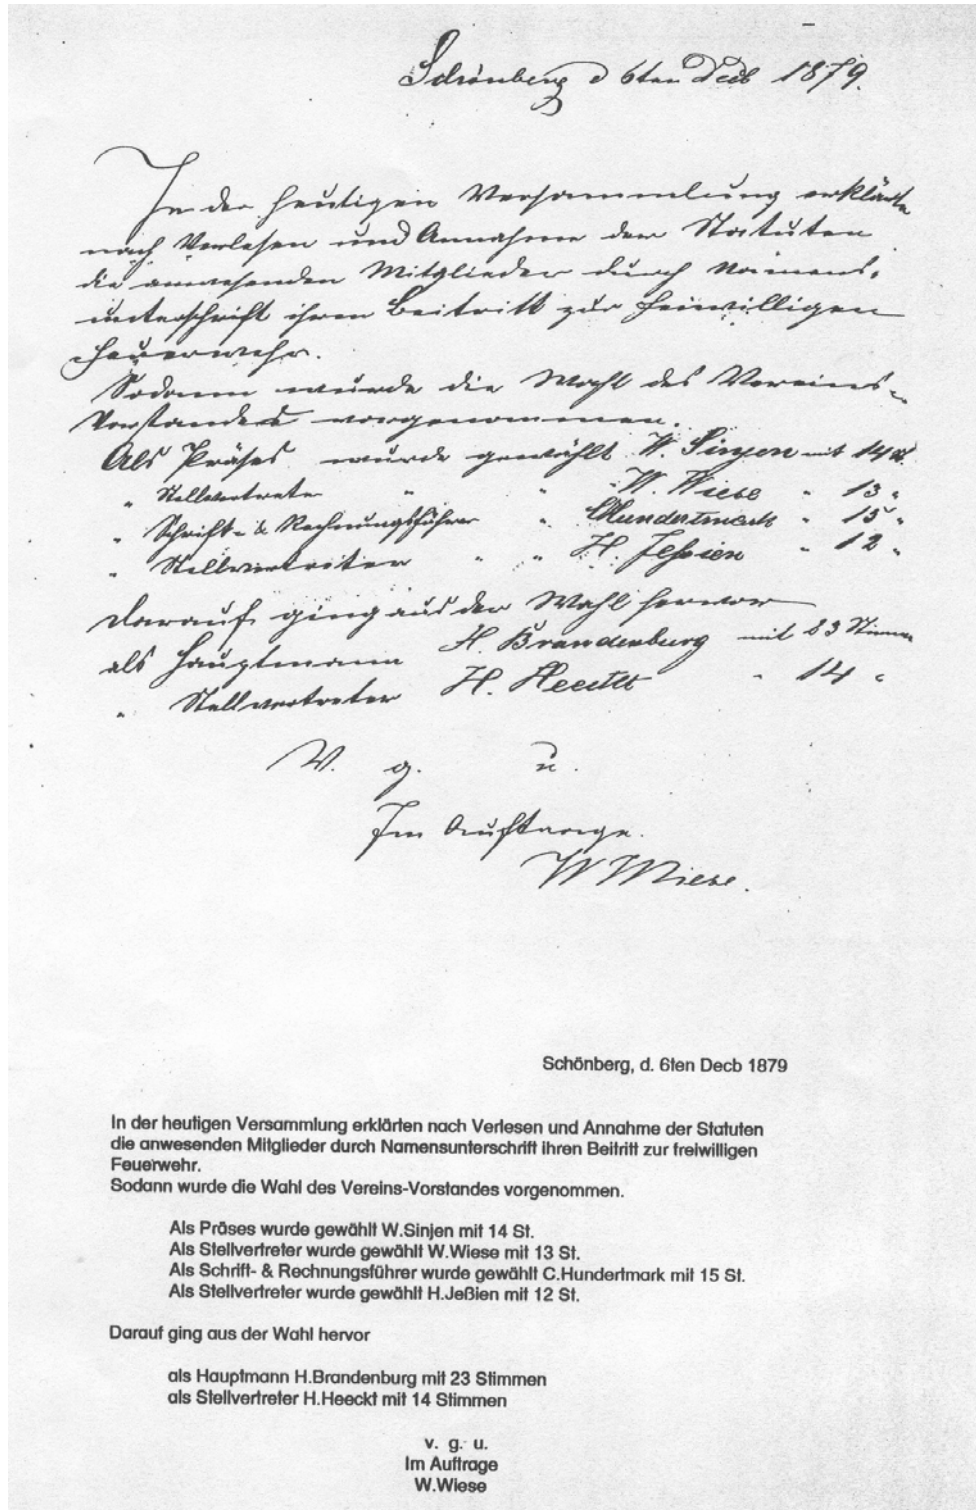 Schönberg d 6ten Decb 1879.
In der heutigen Versammlung erklärten
nach Verlesen und Annahme der Statuten
die anwesenden Mitglieder durch Namens-
unterschrift ihren Beitritt zur freiwilligen
Feuerwehr.
Sodann wurde die Wahl des Vereins-
Vorstandes vorgenommen.
Als Präses wurde gewählt W. Sinjen mit 14 St.
" Stellvertreter " " W. Wiese " 13 "
" Schrift- & Rechnungsführer " CHundertmark " 15 "
" Stellvertreter " " H. Jeßien " 12 "
Darauf ging aus der Wahl hervor
als Hauptmann H. Brandenburg mit 23 Stimmen
" Stellvertreter H. Heeckt " 14 "
V. g. u.
Im Auftrage.
W Wiese.
Schönberg, d. 6ten Decb 1879
In der heutigen Versammlung erklärten nach Verlesen und Annahme der Statuten
die anwesenden Mitglieder durch Namensunterschrift ihren Beitritt zur freiwilligen
Feuerwehr.
Sodann wurde die Wahl des Vereins-Vorstandes vorgenommen.
Als Präses wurde gewählt W.Sinjen mit 14 St.
Als Stellvertreter wurde gewählt W.Wiese mit 13 St.
Als Schrift- & Rechnungsführer wurde gewählt C.Hundertmark mit 15 St.
Als Stellvertreter wurde gewählt H.Jeßien mit 12 St.
Darauf ging aus der Wahl hervor
als Hauptmann H.Brandenburg mit 23 Stimmen
als Stellvertreter H.Heeckt mit 14 Stimmen
v. g. u.
Im Auftrage
W.Wiese